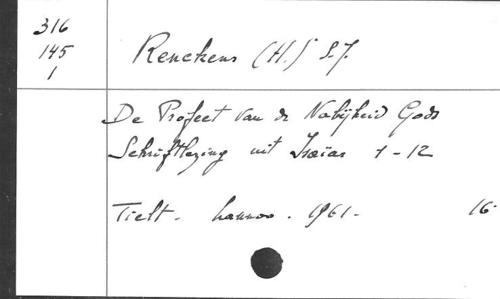 316
145
1
Renckens (H.) S.J.
De Profeet van de Nabijheid Gods
Schriftlezing uit Isaias 1-12
Tielt - Lannoo - 1961 - 16-